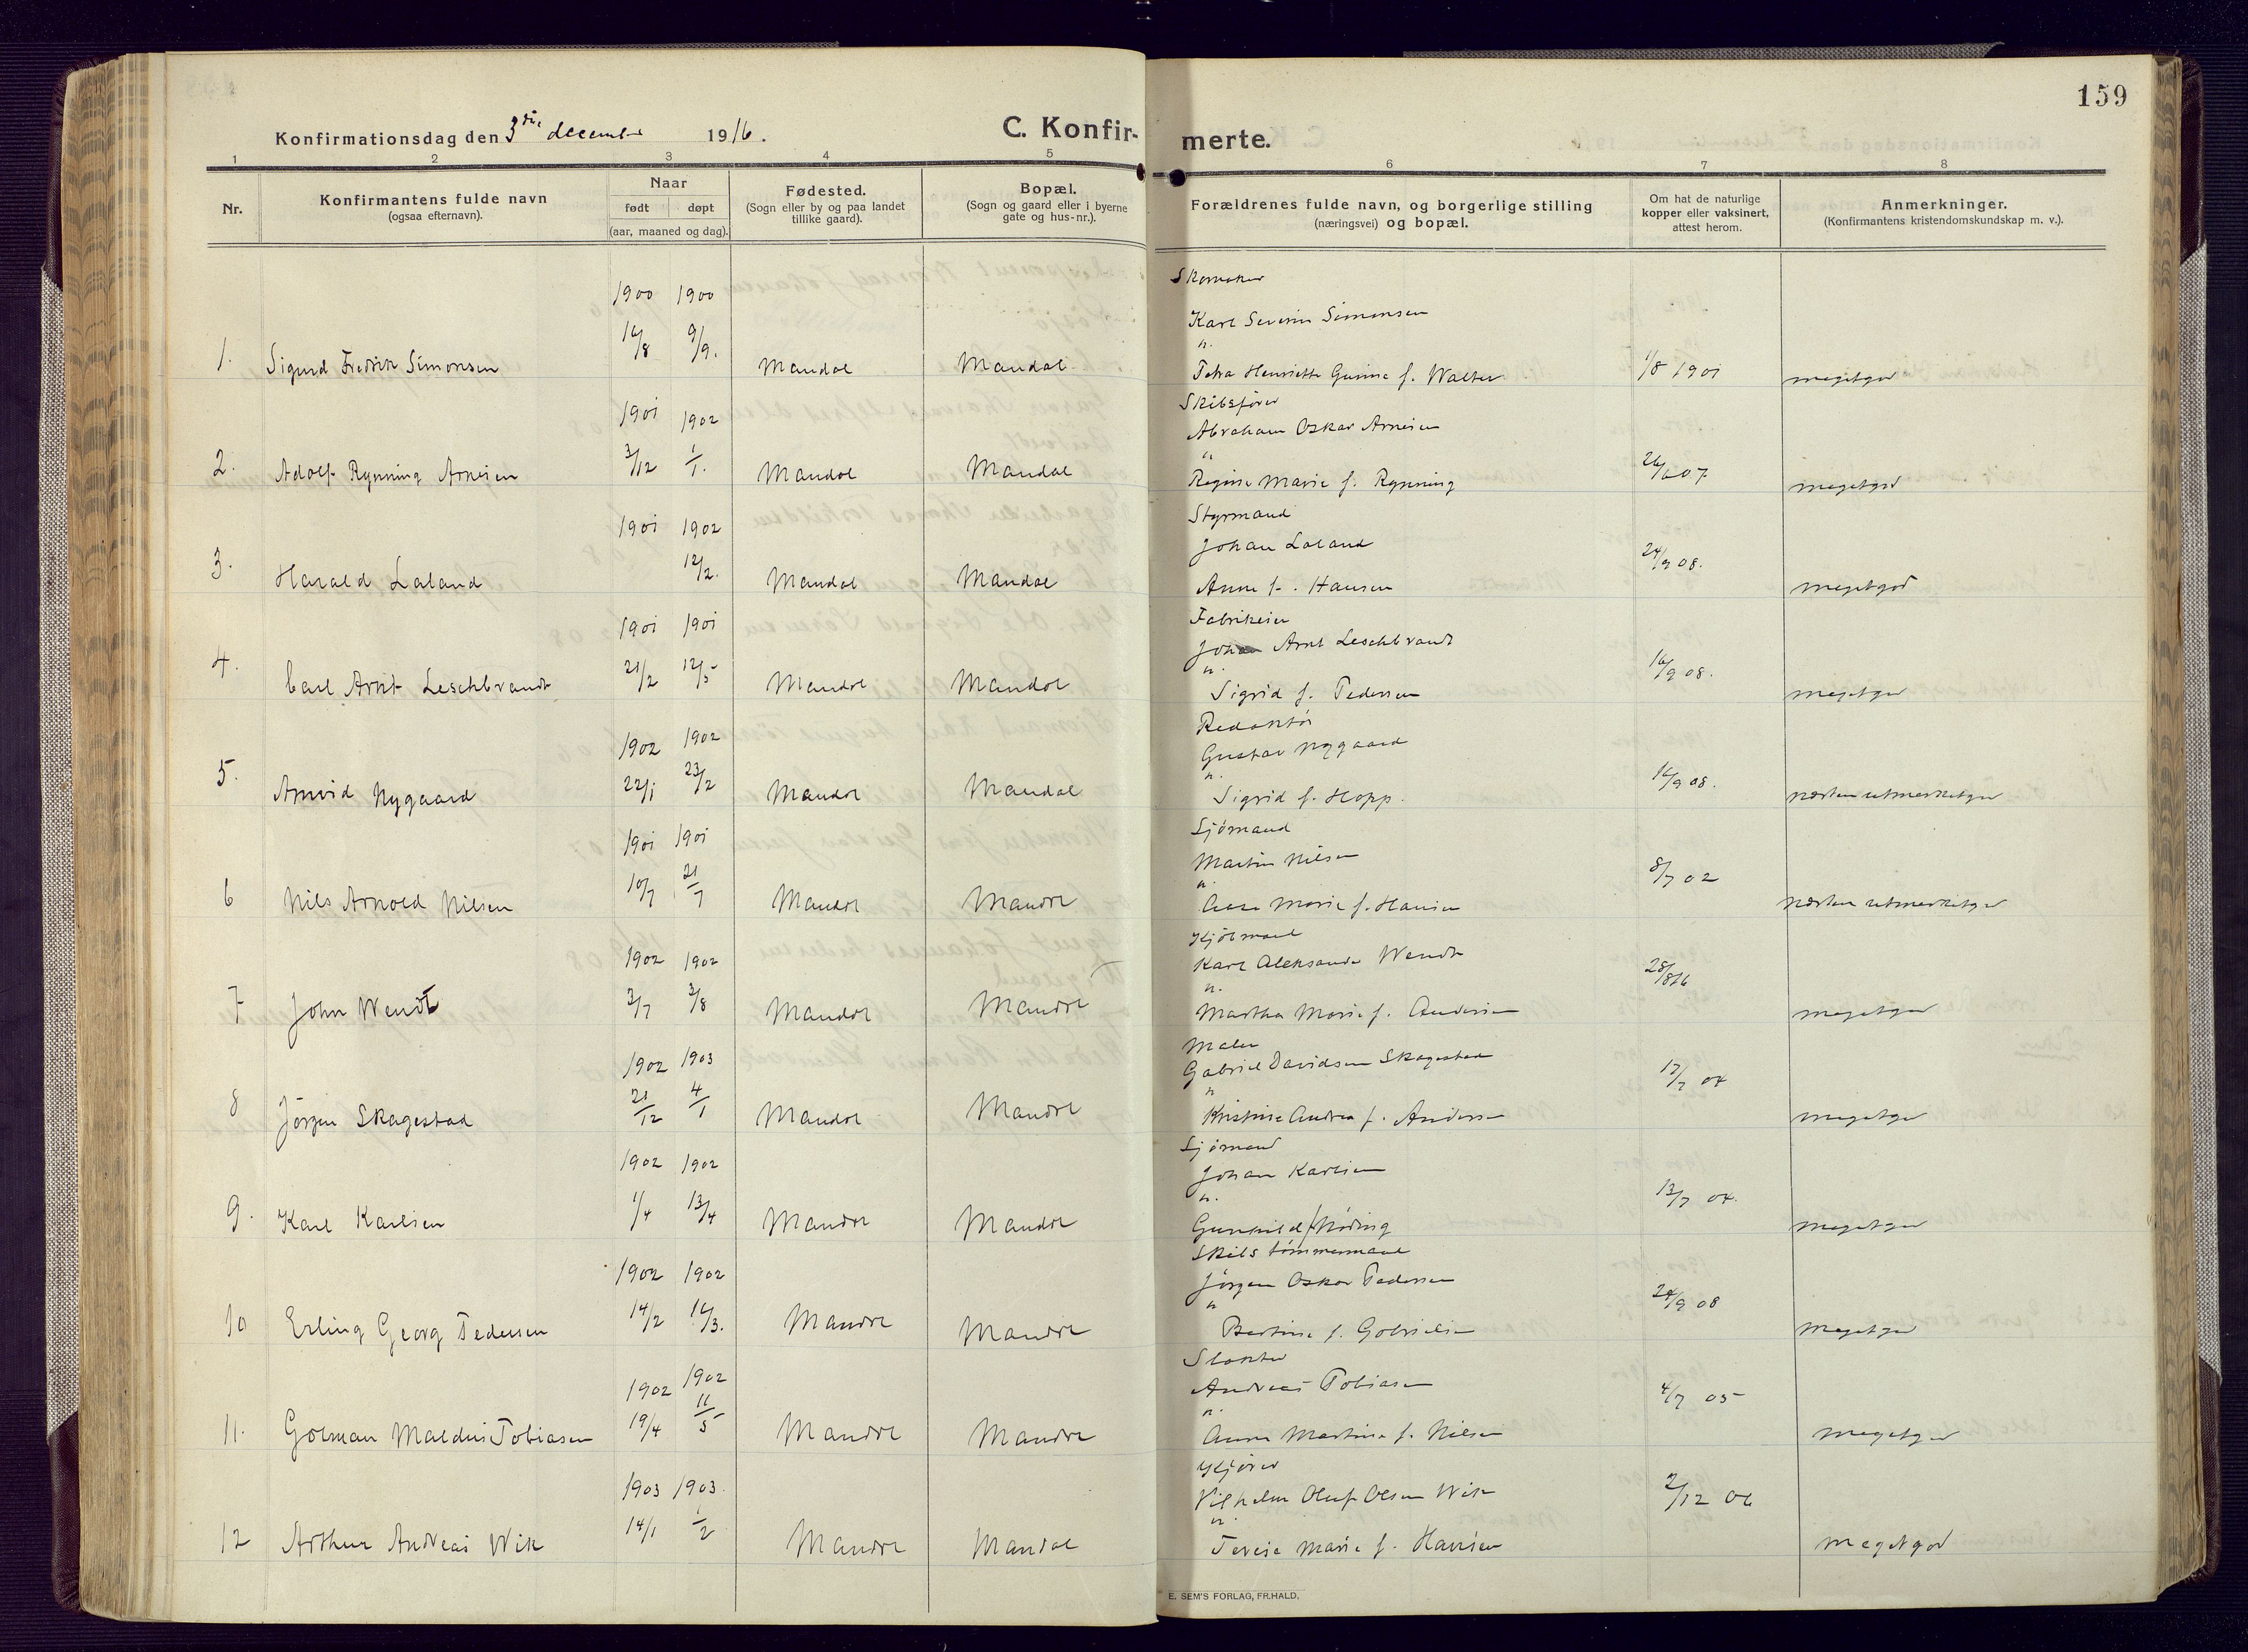 159
Konfirmationsdag den 3die december 1916.
C. Konfir-
merte.
1 2 3 4 5 6 7 8
Nr.
Konfirmantens fulde navn
(ogsaa efternavn).
Naar
født døpt
(aar, maaned og dag).
Fødested.
(Sogn eller by og paa landet
tillike gaard).
Bopæl.
(Sogn og gaard eller i byerne
gate og hus-nr.).
Forældrenes fulde navn, og borgerlige stilling
(næringsvei) og bopæl.
Om hat de naturlige
kopper eller vaksinert,
attest herom.
Anmerkninger.
(Konfirmantens kristendomskundskap m. v.).
Skomaker
1900 1900
Karl Severin Simonsen
16/8 9/9.
1. Sigurd Fredrik Simonsen Mandal Mandal
Henriette f. Walter 1/8 1901 megetgod
Skibsfører
1901 1902
Abraham Oskar Arnesen
2. Adolf Rynning Arnesen 3/12 1/1. Mandal Mandal
Regine Marie f. Rynning 07 megetgod
Styrmand
1901 1902
Johan Laland
3. Harald Laland 12/2. Mandal Mandal
Anne f. Hansen 24/9 08. megetgod
1901 1901
Arnt Leschbrandt
4. Carl Arnt Leschbrandt 21/2 12/5 Mandal Mandal
Sigrid f. Pedersen 16/9 08. megetgod
Redaktør
1902 1902
Gustav Nygaard
5. Arnvid Nygaard 22/1 23/2 Mandal Mandal
Sigrid f. Hopp. 16/9 08. næsten utmerketgod
Sjømand
1901 1901
Martin Nilsen
6 Nils Arnold Nilsen 10/7 21/7 Mandal Mandal
Marie f. Hansen 8/7 02 næsten utmerketgod
Kjøbmand
1902 1902
Karl Aleksander Wendt
7 John Wendt 3/7 3/8 Mandal Mandal
Martha Marie f. Andersen 28/8 16 megetgod
Maler
1902 1903
Gabriel Davidsen Skagestad
8 Jørgen Skagestad 21/12 4/1 Mandal Mandal
Kristine Andrea f. Andersen 13/7 04 megetgod
Sjømand
1902 1902
Johan Karlsen
9. Karl Karlsen 1/4 13/4 Mandal Mandal
Gunhild f. 13/7 04. megetgod
Skibstømmermand
1902 1902
Jørgen Oskar Pedersen
10 Erling Georg Pedersen 14/2 16/3. Mandal Mandal
Bertine f. Gabrielsen 24/9 08 megetgod
Slakter
1902 1902
Andreas Tobiasen
11. Tobiasen 19/4 11/5 Mandal Mandal
Anna Martine f. Nilsen 4/7 05 megetgod
Kjører
1903 1903
Vilhelm Oluf Olsen Wik
12 Arthur Andreas Wik 14/1 1/2 Mandal Mandal
Terese Marie f. Hansen 2/12 06 megetgod
E. SEM'S FORLAG, FR.HALD.